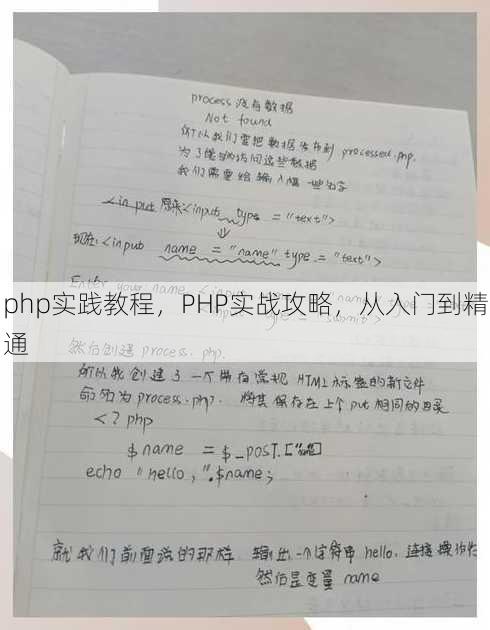 process 没有数据
Not found
所以我们要把数据发布到 processed.php.
为了能够访问这些数据
我们需要给输入框一些名字
<input 原来<input type = "text">
⇓
现在:<input name = "name" type = "text">
Enter your name <input
php实践教程，PHP实战攻略，从入门到精
通
= "submit">
然后创建 process. php.
所以我创建了一个带有常规 HTML标签的新文件
命名为process.php. 将其保存在上个 put 相同的目录
<? php
$name = $_POST.["name"]
echo "hello, ".$name;
就我们前面说的那样 输出一个字符串 hello. 连接操作
然后是变量 name